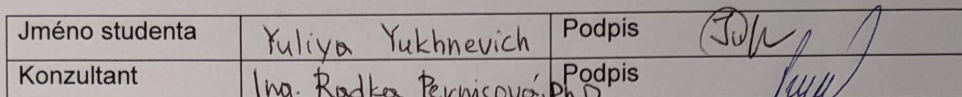 Jméno studenta Yuliya Yukhnevich Podpis
Konzultant Ing. Radka Pernicová, PhD Podpis